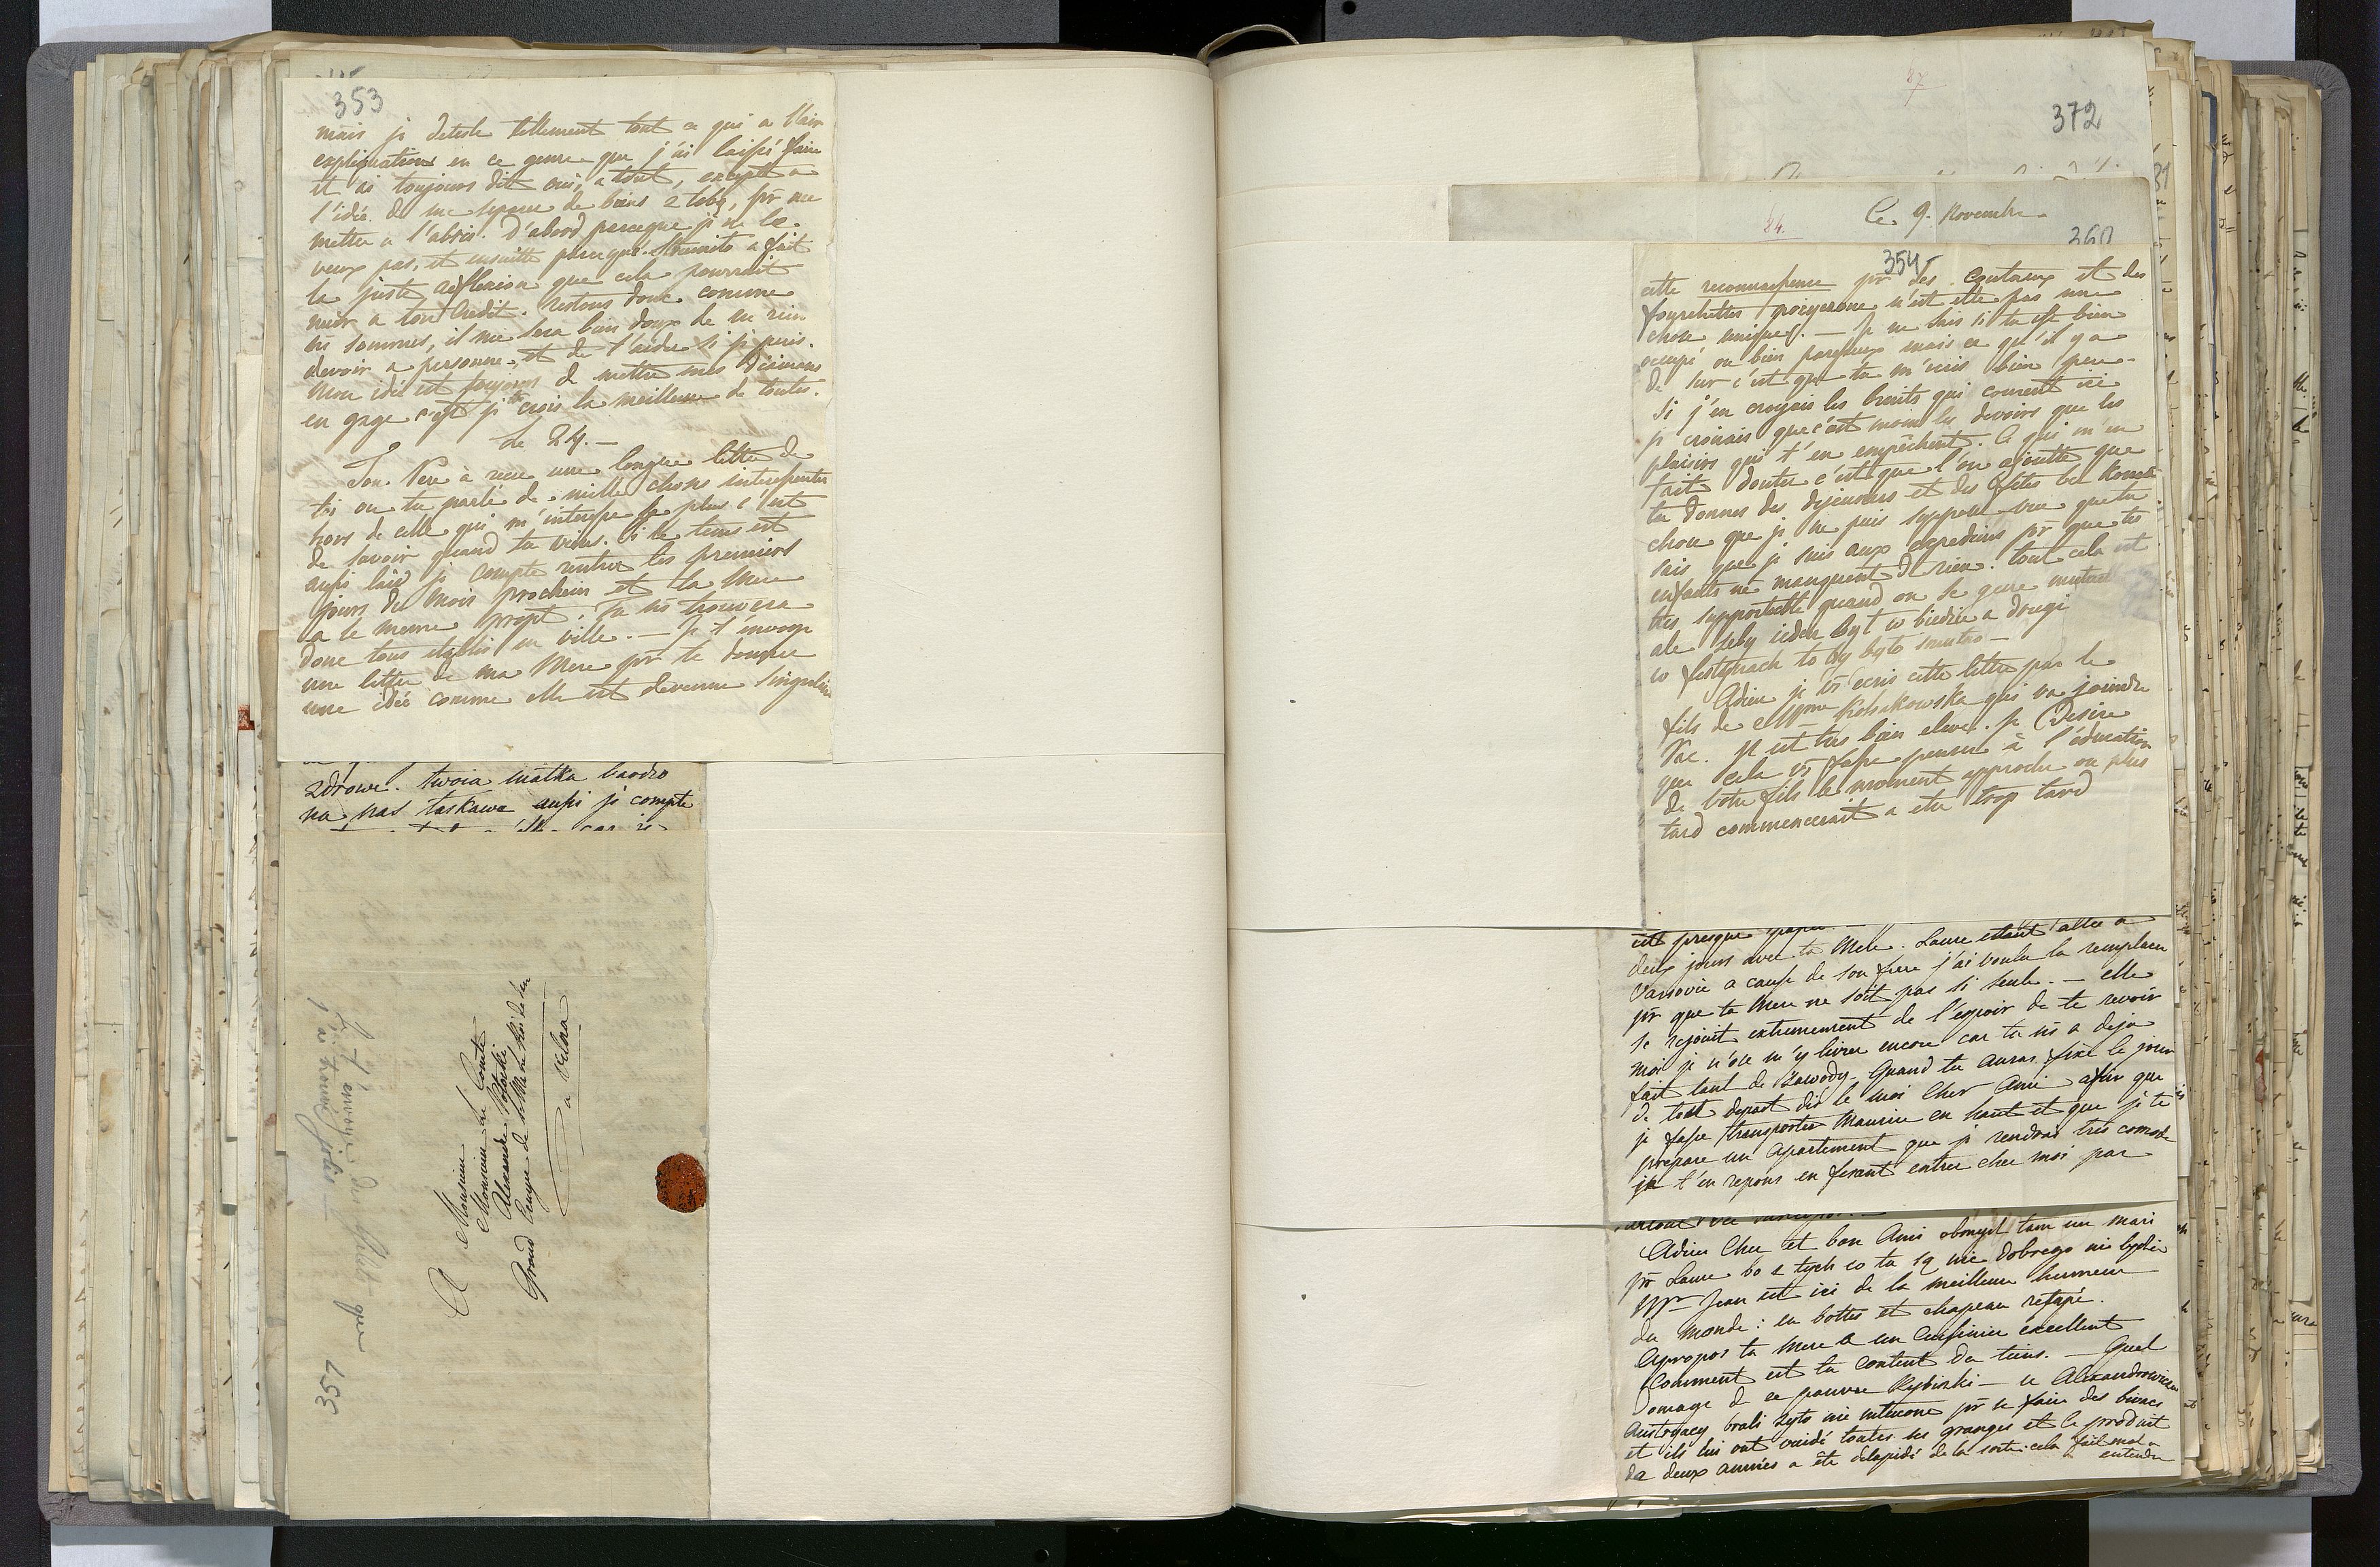 353
mais je deteste tellement tout ce qui a l'air
explication en ce genre que j'ai laissé faire
et ai toujours dit oui, a tout, excepté a
l'idée de me separer de biens z tobą, pr me
mettre a l'abris. D'abord parceque je ne le
veux pas, et ensuitte parceque a fait
la juste reflexion que cela pourrait
nuir a ton Credit. restons donc comme
ns sommes, il me sera bien doux de ne rien
devoir a personne, et de t'aider si je puis.
Mon idée est toujours de mettre mes Diamens
en gage c'est je crois la meilleure de toutes.
Le 24. —
Ton Pere à recu une longue lettre de
toi ou tu parle de mille choses interessentes
hors de celle qui m'interesse le plus c'est
de savoir quand tu viens. Si le tems est
aussi laid je compte rentrer les premiers
jours du mois prochain et ta Mere
a le meme projet, tu ns trouvera
donc tous etablis en ville. — Je t'envoye
une lettre de ma Mere pr te donner
une idée comme elle est devenue singuliere
zdrowe. twoia matka bardzo
na nas łaskawa aussi je compte
A Monsieur
Monsieur le Comte
Alexandre Potocki
Grand Ecuyer de S. M. le Roi de Saxe
a Vilna
Je t'envoye des que
j'ai trouvé jolis —
357
87
372
Le 9. Novembre
84.
360
354
cette reconnaissence pr des Couteaux et des
fourchettes n'est elle pas une
chose unique. — Je ne sais si tu est bien
occupé ou bien paresseux mais ce qu'il y a
de sur c'est que tu m'ecris bien peu —
Si j'en croyais les bruits qui courent ici
je croirais que c'est moins les devoirs que les
plaisirs qui t'en empêchent. Ce qui m'en
fait douter c'est que l'on ajoutte que
tu donnes des dejeuners et des fêtes bez końca
chose que je ne puis supposer vue que tu
sais que je suis aux expediens pr que tes
enfants ne manquent de rien. tout cela est
tres supportable quand on se gene mutuel
ale żeby ieden był w biedzie a drugi
w festynach to by było smutno —
Adieu je ts ecris cette lettre par le
fils de Mme Kossakowska qui va joindre
Pac. Il est tres bien elevé. Je Desire
que cela ts fasse penser à l'éducation
de votre fils le moment approche ou plus
tard commencerait a etre trop tard
est presque
deux jours avec ta Mere. Laure etant allée a
Varsovie a cause de son frere j'ai voulu la remplacer
pr que ta Mere ne soit pas si seule. — elle
se rejouit extremement de l'espoir de te revoir
moi je n'ose m'y livrer encore car tu ns a deja
fait tant de zawody — Quand tu auras fixé le jour
de tout depart dis le moi Cher Ami afin que
je fasse transporter Maurice en haut et que je te
prepare un apartement que je rendrai très comode
je t'en repons en fesant entrer chez moi par
Adieu Cher et bon Ami obmyśl tam un mari
pr Laure bo z tych co tu są nic dobrego nie będzie
Mr Jean est ici de la meilleure humeur
du monde : en bottes et chapeau retapé.
Apropos ta Mere a un Cuisinier excellent
Comment est tu content du tiens. — Quel
Domage de ce pauvre Rybiński — u Alexandrowicza
Austryacy brali żyto nie młucone pr se faire des
et ils lui ont vuidé toutes ses granges et le produit
de deux années a été delapidé de la sorte : cela fait mal a
entendre